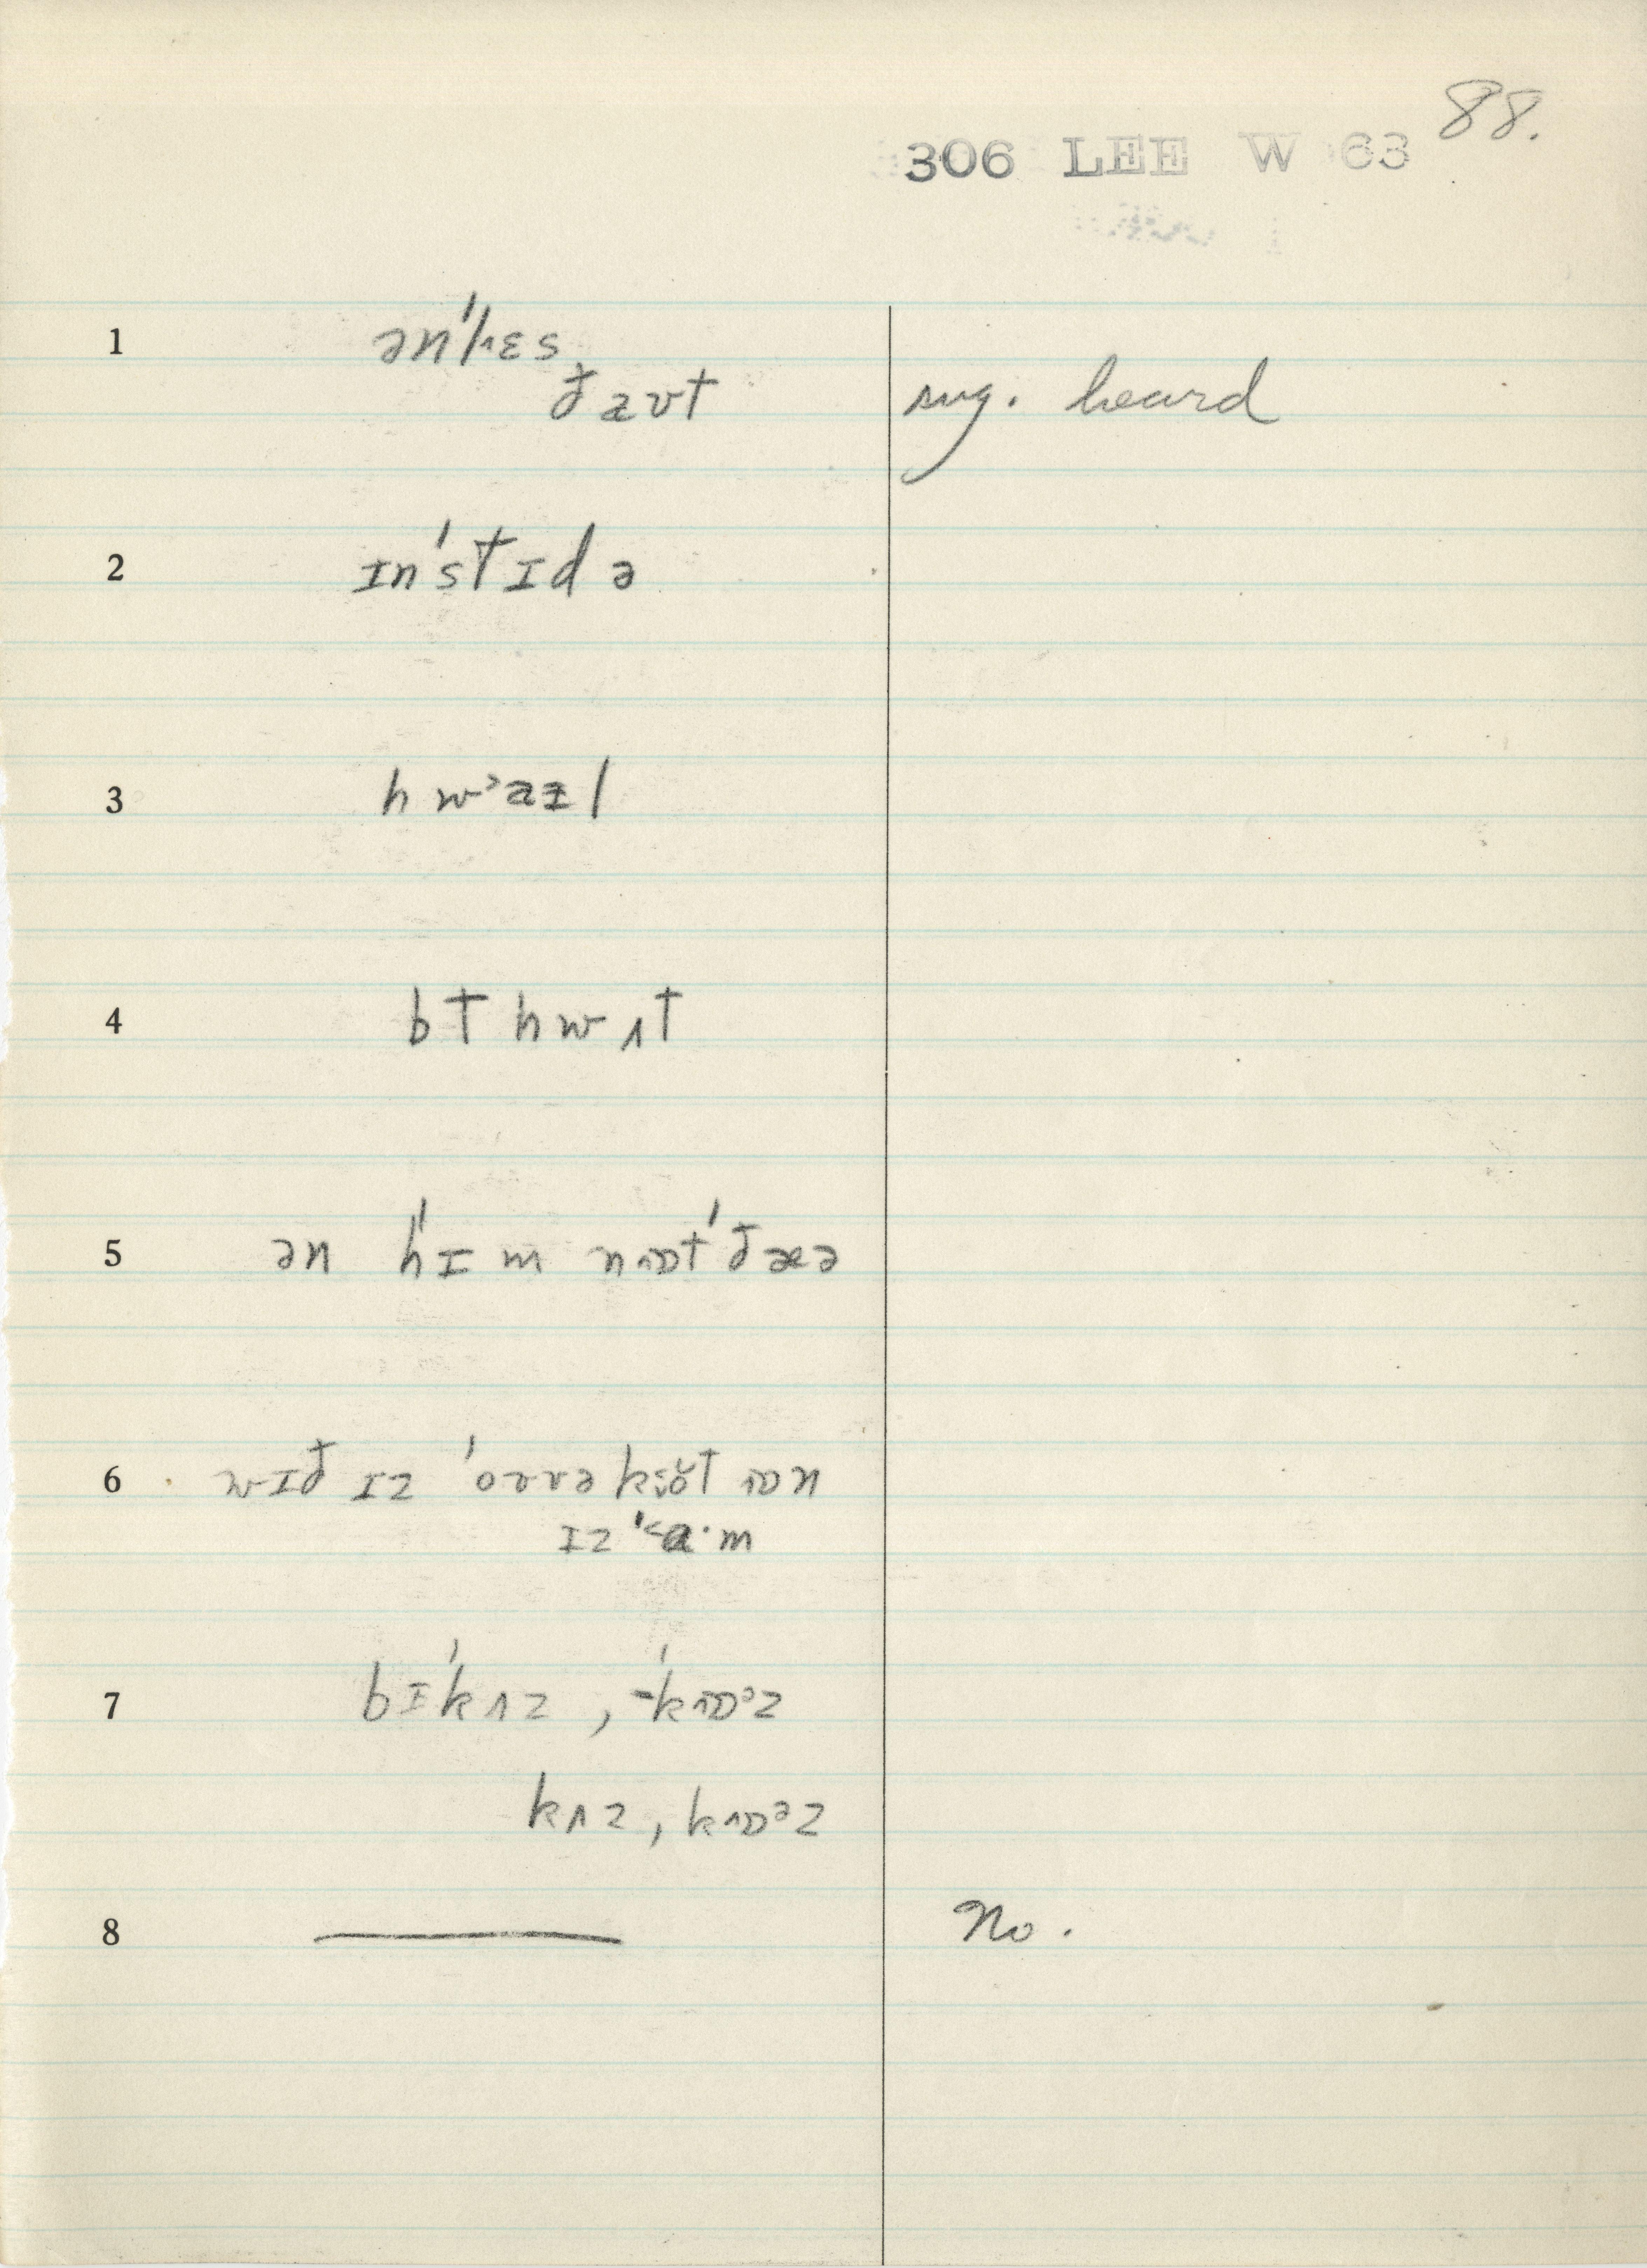 88.
306 LEE W 63
1 ən'hɛs
ðaʊt sug. heard
2 ɪn'stɪdə
3 hwᵊaɪl
4 bt hwʌt
5 ən 'hɪm nɒt 'ðæə
6 wɪð ɪz 'oʊvəkoʊt ɒn
ɪz 'a·m
7 bɪ'kʌz, -'kɒᵊz
kʌz, kɒᵊz
8 ——— No.